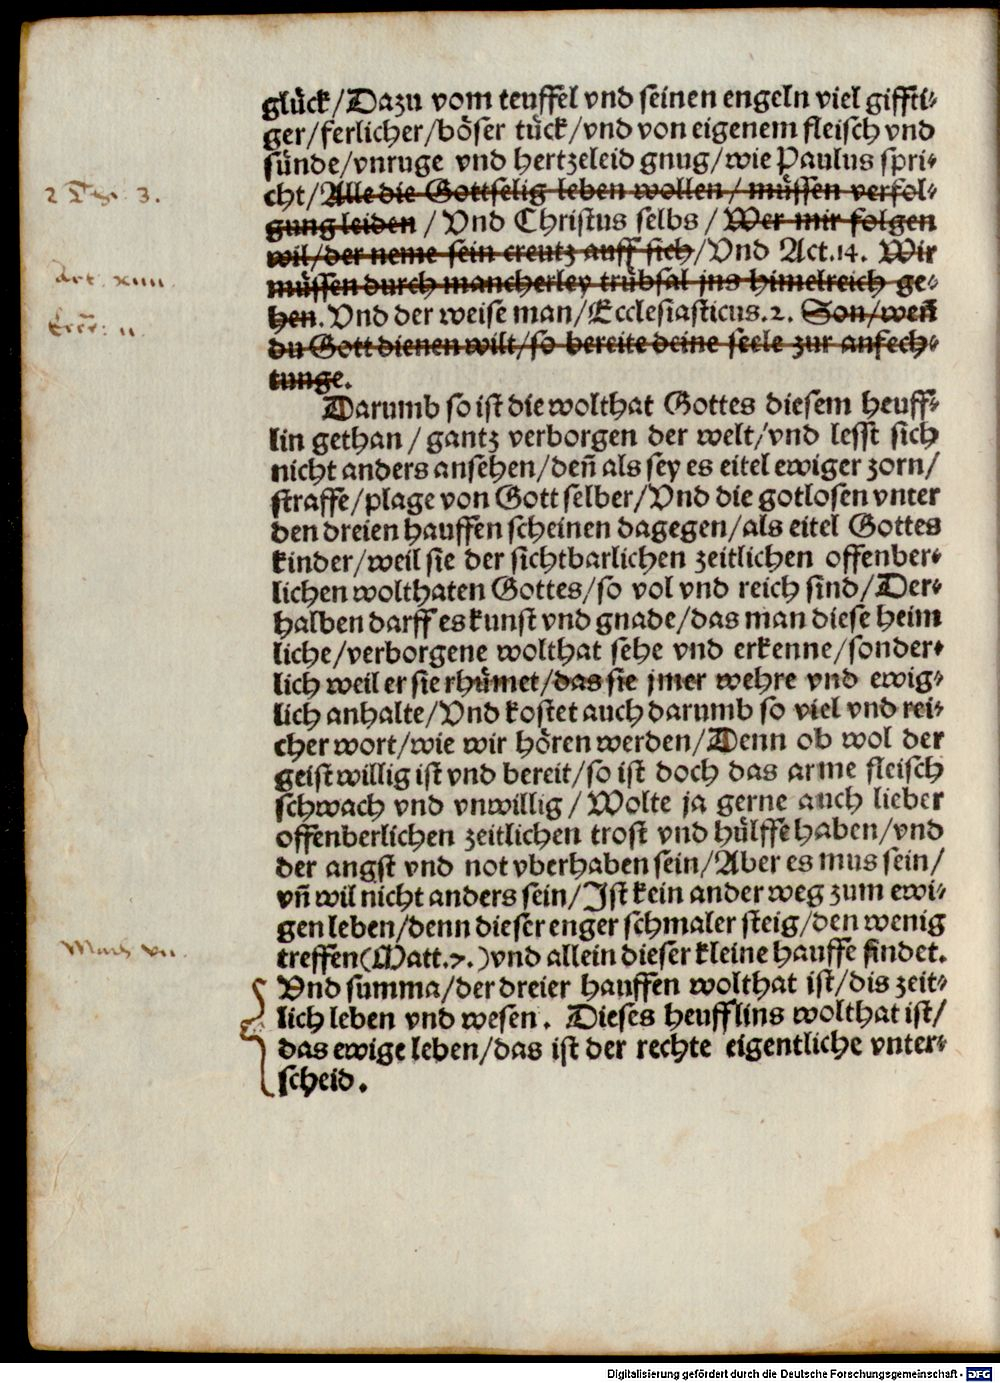 glück/Dazu vom teuffel vnd seinen engeln viel giffti⸗
ger/ferlicher/böser tück/vnd von eigenem fleisch vnd
sünde/vnruge vnd hertzeleid gnug/wie Paulus spri⸗
cht/Alle die Gottselig leben wollen/müssen verfol⸗
gung leiden/Vnd Christus selbs/Wer mir folgen
wil/der neme sein creutz auff sich/Vnd Act.14. Wir
müssen durch mancherley trübsal jns himelreich ge⸗
hen.Vnd der weise man/Ecclesiasticus.2. Son/weñ
du Gott dienen wilt/so bereite deine seele zur anfech⸗
tunge.
Darumb so ist die wolthat Gottes diesem heuff⸗
lin gethan/gantz verborgen der welt/vnd lesst sich
nicht anders ansehen/deñ als sey es eitel ewiger zorn/
straffe/plage von Gott selber/Vnd die gotlosen vnter
den dreien hauffen scheinen dagegen/als eitel Gottes
kinder/weil sie der sichtbarlichen zeitlichen offenber⸗
lichen wolthaten Gottes/so vol vnd reich sind/Der⸗
halben darff es kunst vnd gnade/das man diese heim
liche/verborgene wolthat sehe vnd erkenne/sonder⸗
lich weil er sie rhümet/das sie jmer wehre vnd ewig⸗
lich anhalte/Vnd kostet auch darumb so viel vnd rei⸗
cher wort/wie wir hören werden/Denn ob wol der
geist willig ist vnd bereit/so ist doch das arme fleisch
schwach vnd vnwillig/Wolte ja gerne auch lieber
offenberlichen zeitlichen trost vnd hülffe haben/vnd
der angst vnd not vberhaben sein/Aber es mus sein/
vñ wil nicht anders sein/Ist kein ander weg zum ewi⸗
gen leben/denn dieser enger schmaler steig/den wenig
treffen(Matt.7.)vnd allein dieser kleine hauffe findet.
Vnd summa/der dreier hauffen wolthat ist/dis zeit⸗
lich leben vnd wesen. Dieses heufflins wolthat ist/
das ewige leben/das ist der rechte eigentliche vnter⸗
scheid.
3.
Act. xiiii.
Math vii.
Digitalisierung gefördert durch die Deutsche Forschungsgemeinschaft - DFG